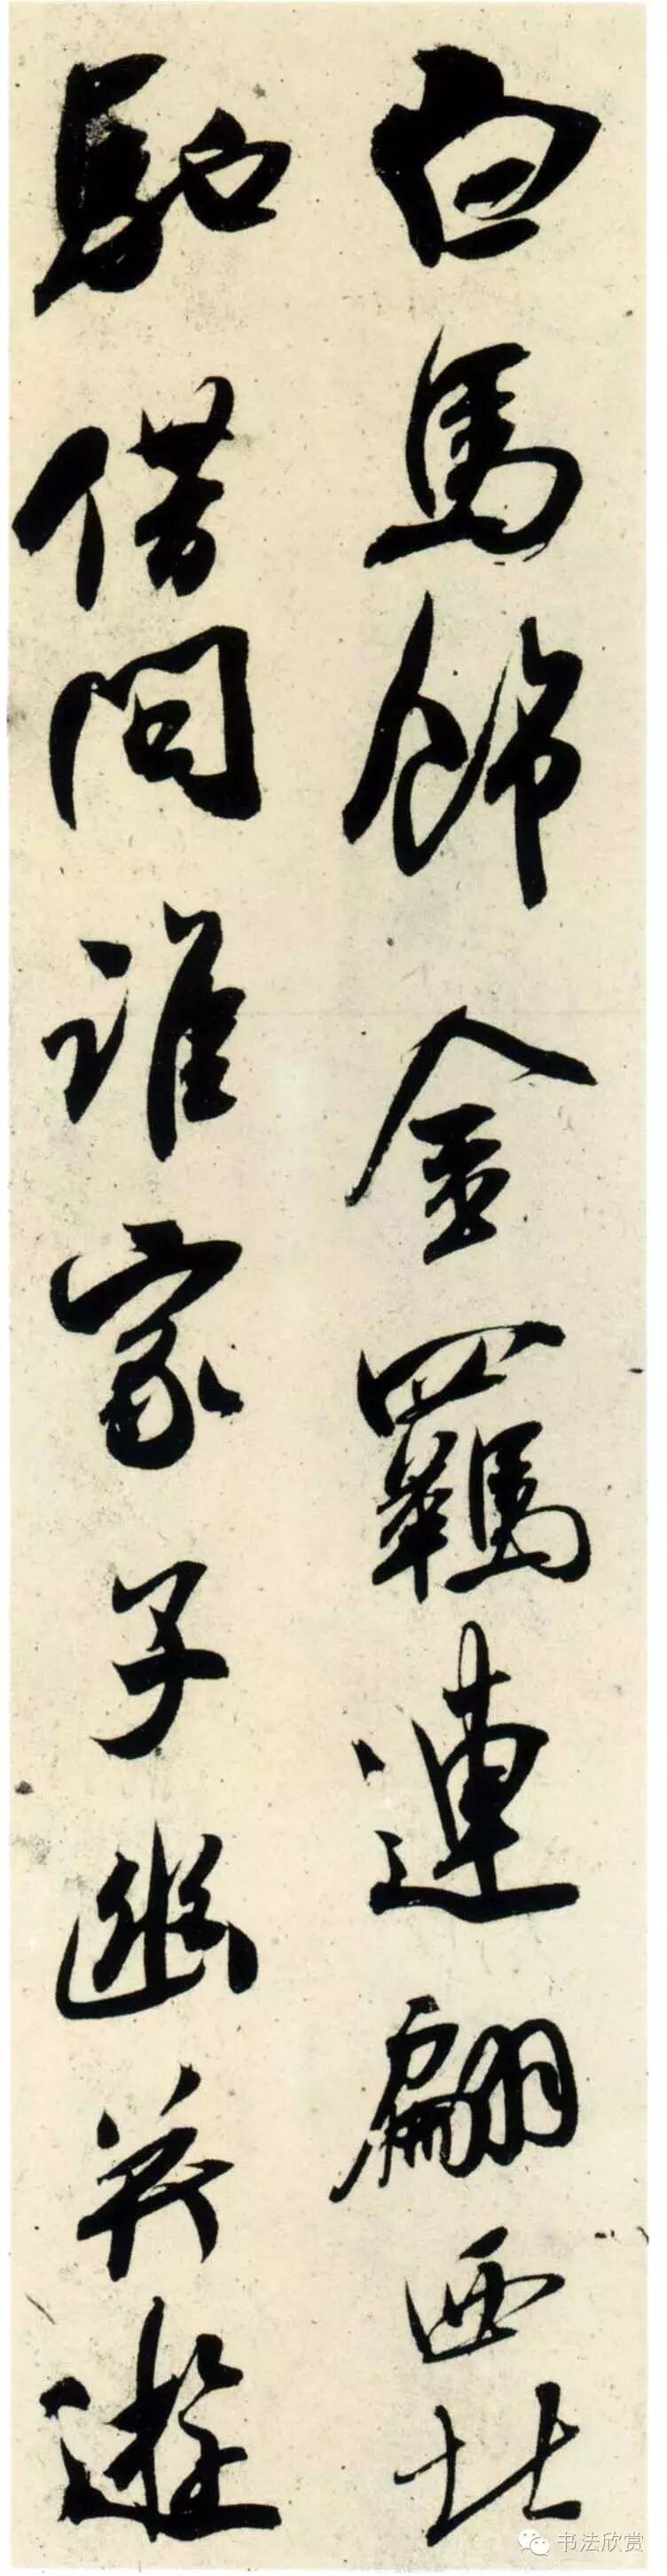 白馬飾金羈連翩西北
馳借問誰家子幽并遊
书法欣赏